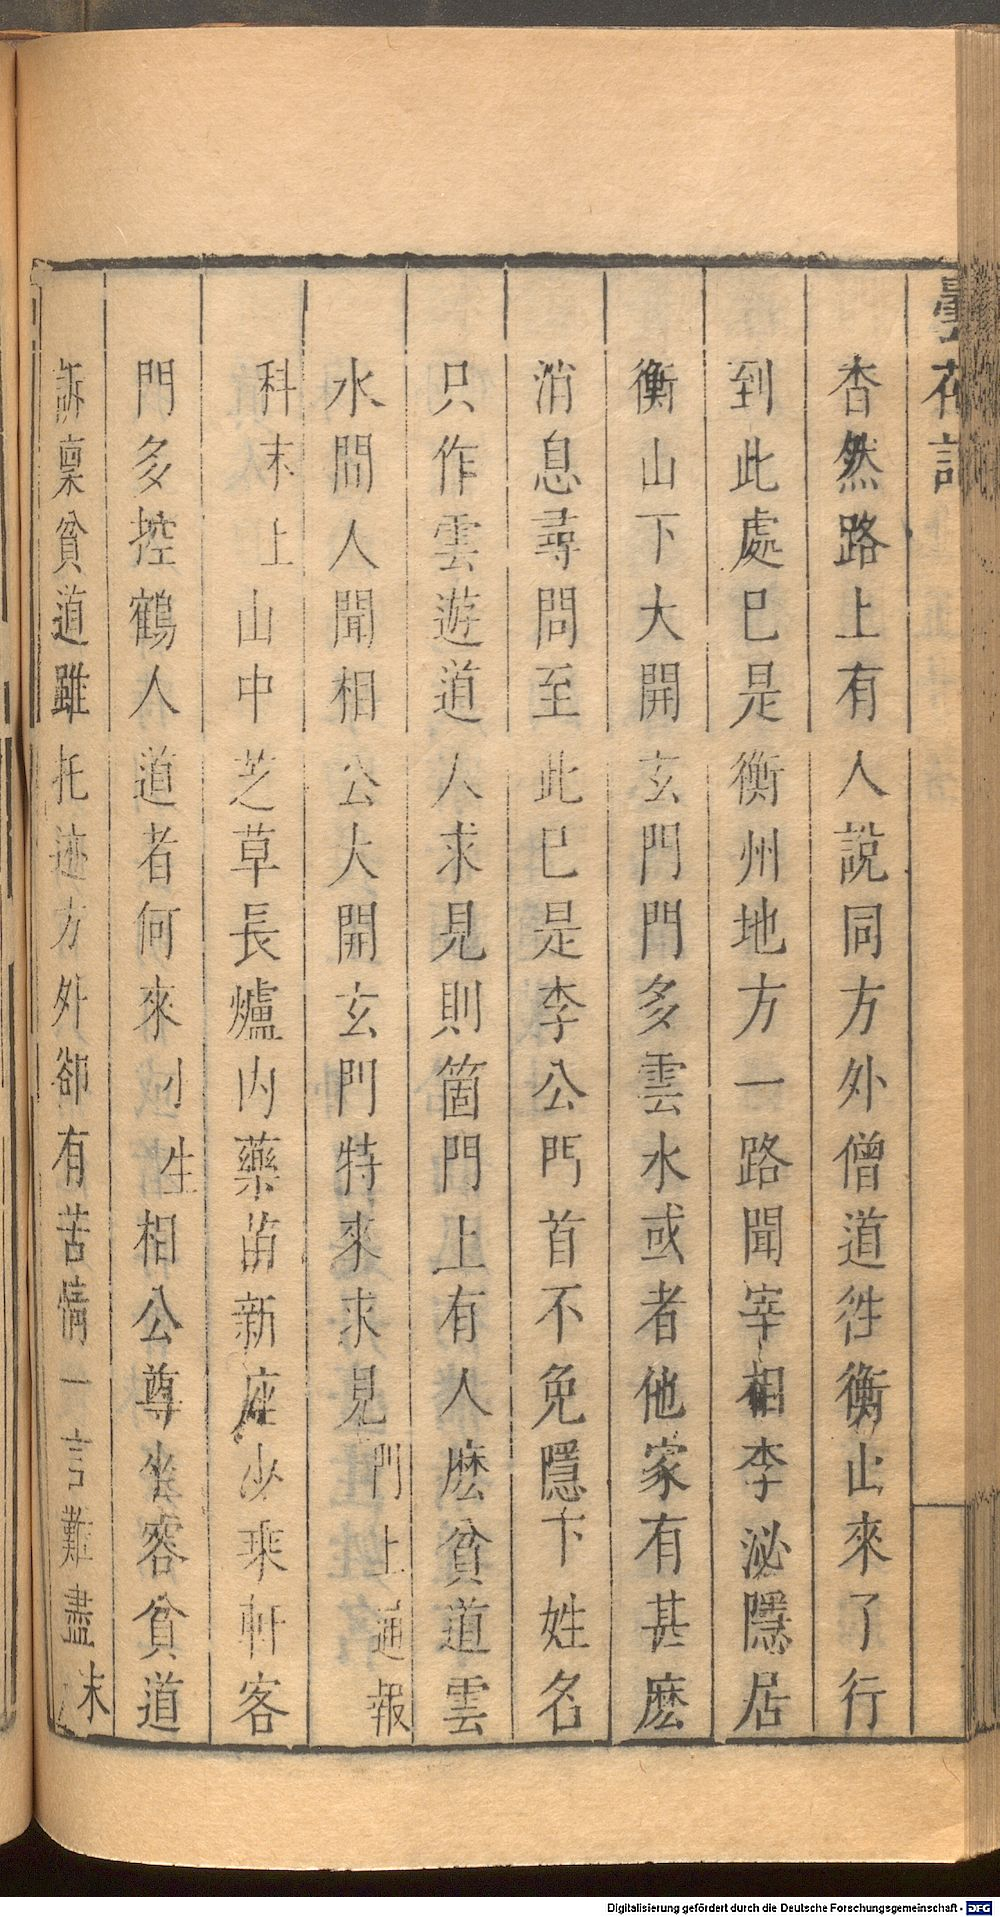 曇花記
杳然路上有人說同方外僧道徃衡山來了行
到此處巳是衡州地方一路聞宰相李泌隱居
衡山下大開玄門門多雲水或者他家有甚麽
消息尋問至此巳是李公門首不免隱下姓名
只作雲遊道人求見則箇門上有人麽貧道雲
水間人聞相公大開玄門特來求見門上通報
科末上山中芝草長爐内藥苗新座少乘軒客
門多控鶴人道者何來小生相公尊坐容貧道
訴稟貧道雖托迹方外卻有苦情一言難盡末
Digitalisierung gefördert durch die Deutsche Forschungsgemeinschaft - DFG